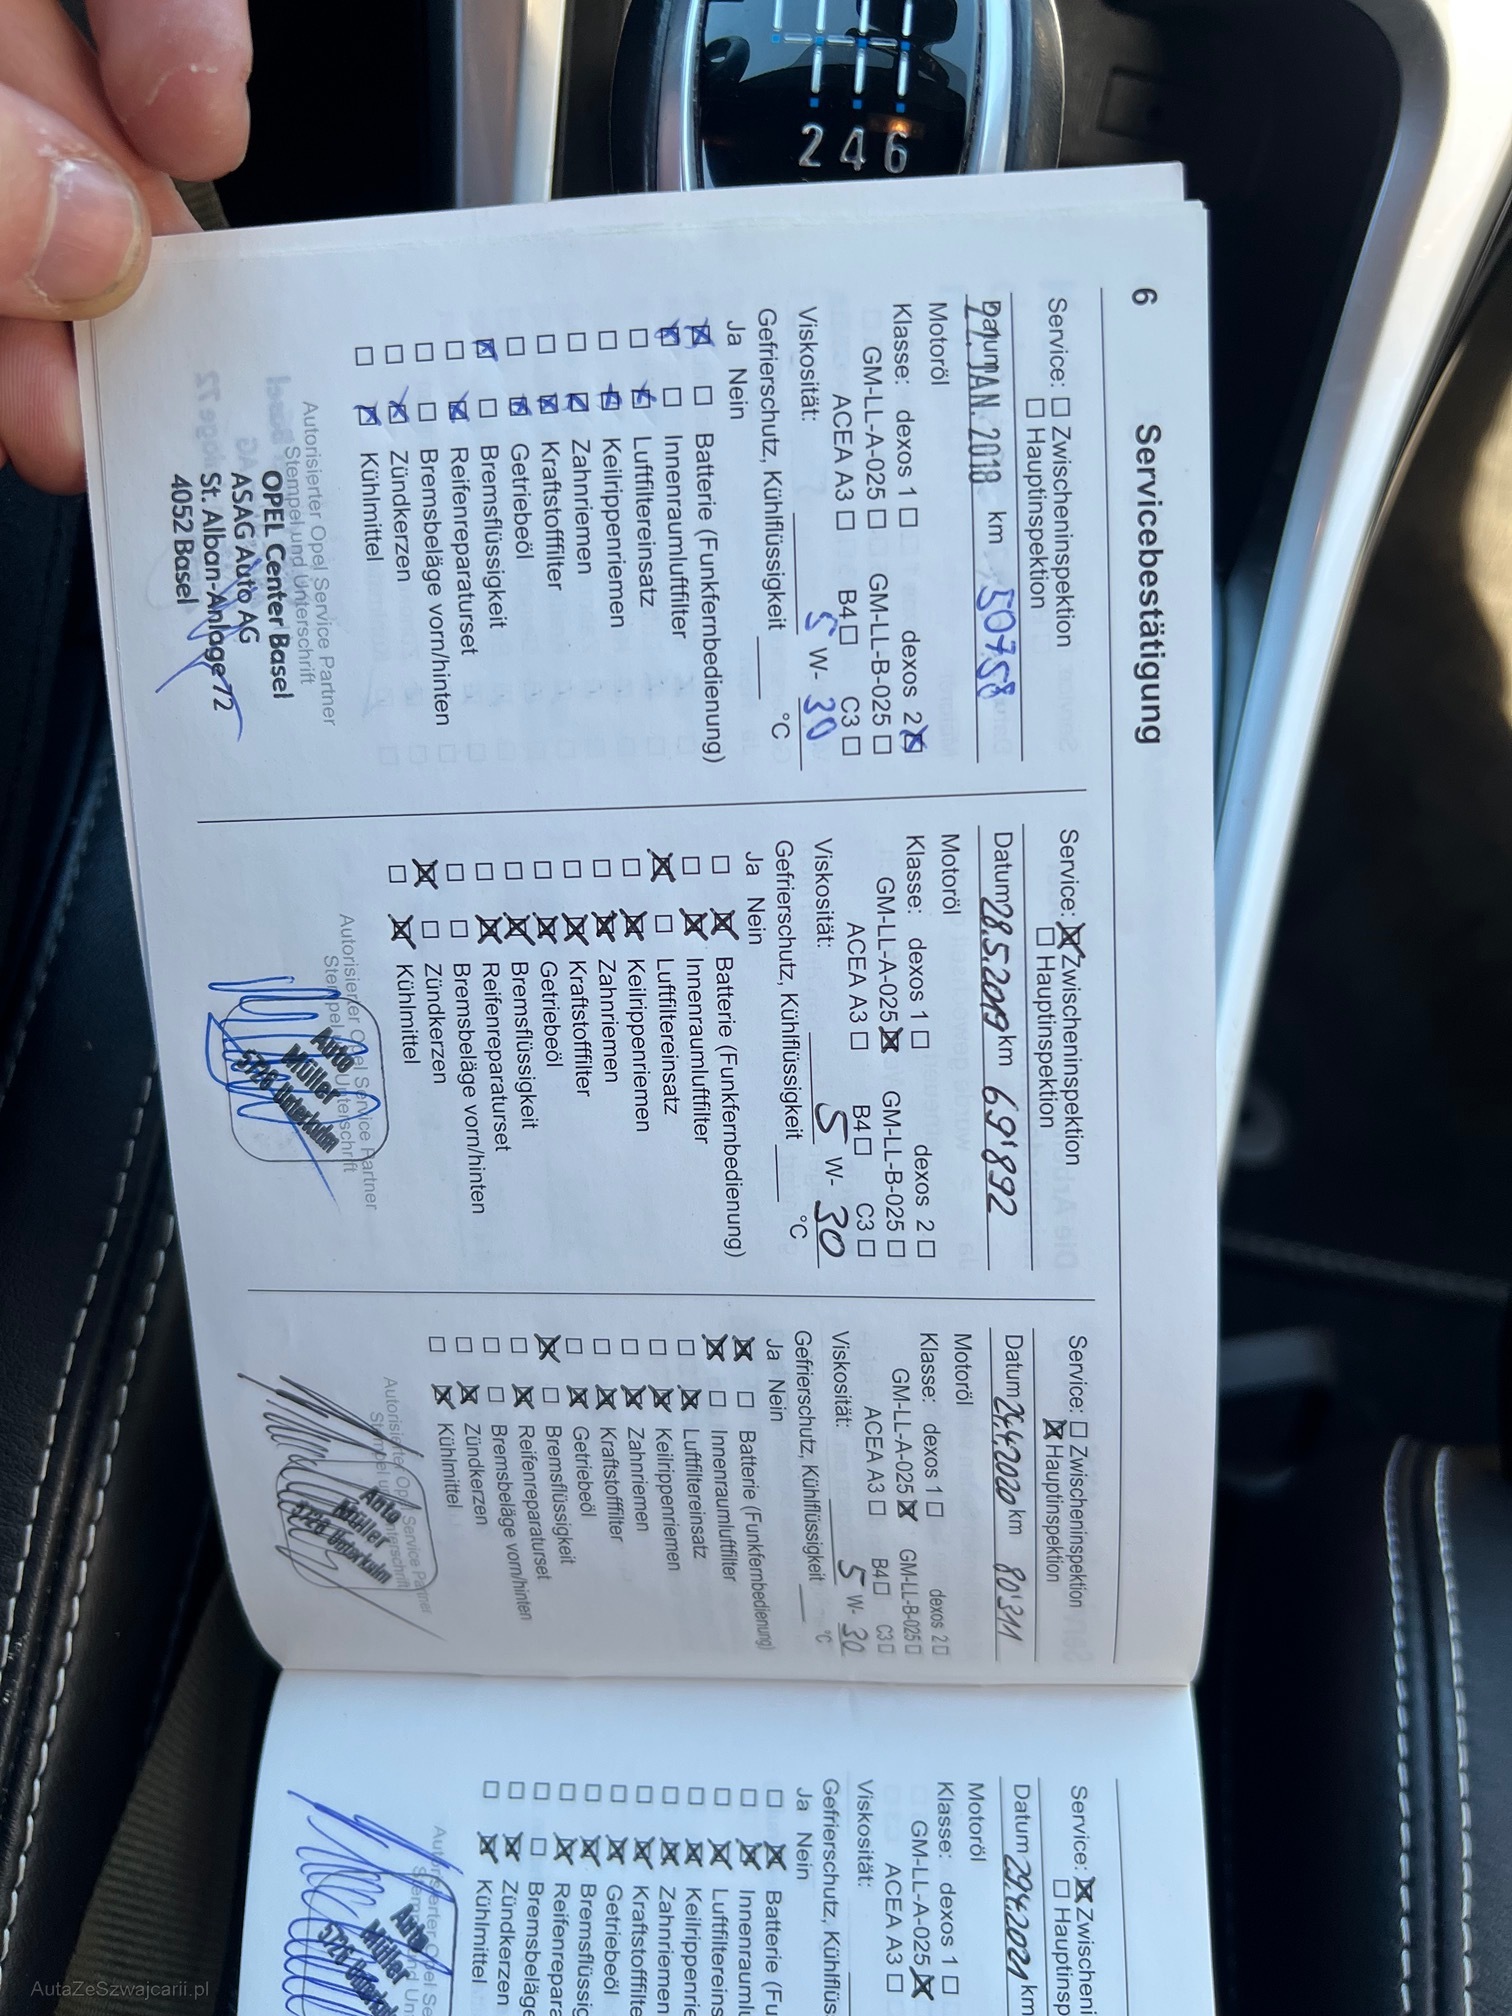 2 4 6
6 Servicebestätigung
Service: ☐ Zwischeninspektion
☐ Hauptinspektion
Datum JAN. 2018 km 50758
Motoröl
Klasse: dexos 1 ☐ dexos 2 ☒
GM-LL-A-025 ☐ GM-LL-B-025 ☐
ACEA A3 ☐ B4 ☐ C3 ☐
Viskosität: 5 W- 30
Gefrierschutz, Kühlflüssigkeit ____ °C
Ja Nein
☒ ☐ Batterie (Funkfernbedienung)
☒ ☐ Innenraumluftfilter
☐ ☒ Luftfiltereinsatz
☐ ☒ Keilrippenriemen
☐ ☒ Zahnriemen
☐ ☒ Kraftstofffilter
☐ ☒ Getriebeöl
☒ ☐ Bremsflüssigkeit
☐ ☒ Reifenreparaturset
☐ ☐ Bremsbeläge vorn/hinten
☐ ☒ Zündkerzen
☐ ☒ Kühlmittel
Autorisierter Opel Service Partner
Stempel und Unterschrift
OPEL Center Basel
ASAG Auto AG
St. Alban-Anlage 72
4052 Basel
Service: ☒ Zwischeninspektion
☐ Hauptinspektion
Datum 28.5.2019 km 69'892
Motoröl
Klasse: dexos 1 ☐ dexos 2 ☐
GM-LL-A-025 ☒ GM-LL-B-025 ☐
ACEA A3 ☐ B4 ☐ C3 ☐
Viskosität: 5 W- 30
Gefrierschutz, Kühlflüssigkeit ____ °C
Ja Nein
☐ ☒ Batterie (Funkfernbedienung)
☐ ☒ Innenraumluftfilter
☒ ☐ Luftfiltereinsatz
☐ ☒ Keilrippenriemen
☐ ☒ Zahnriemen
☐ ☒ Kraftstofffilter
☐ ☒ Getriebeöl
☐ ☒ Bremsflüssigkeit
☐ ☒ Reifenreparaturset
☐ ☐ Bremsbeläge vorn/hinten
☒ ☐ Zündkerzen
☐ ☒ Kühlmittel
Autorisierter Opel Service Partner
Stempel Unterschrift
Auto
Müller
5726 Unterkulm
Service: ☐ Zwischeninspektion
☒ Hauptinspektion
Datum 24.4.2020 km 80'311
Motoröl
Klasse: dexos 1 ☐ dexos 2 ☐
GM-LL-A-025 ☒ GM-LL-B-025 ☐
ACEA A3 ☐ B4 ☐ C3 ☐
Viskosität: 5 W- 30
Gefrierschutz, Kühlflüssigkeit ____ °C
Ja Nein
☒ ☐ Batterie (Funkfernbedienung)
☒ ☐ Innenraumluftfilter
☐ ☒ Luftfiltereinsatz
☐ ☒ Keilrippenriemen
☐ ☒ Zahnriemen
☐ ☒ Kraftstofffilter
☐ ☒ Getriebeöl
☒ ☐ Bremsflüssigkeit
☐ ☒ Reifenreparaturset
☐ ☐ Bremsbeläge vorn/hinten
☐ ☒ Zündkerzen
☐ ☒ Kühlmittel
Autorisierte Op Service Partner
Stempel u nterschrift
Auto
Müller
5726 Unterkulm
Service: ☒ Zwischeni
☐ Hauptinsp
Datum 29.4.2021 km
Motoröl
Klasse: dexos 1 ☐
GM-LL-A-025 ☒
ACEA A3 ☐
Viskosität:
Gefrierschutz, Kühlflüss
Ja Nein
☐ ☒ Batterie (Fu
☐ ☒ Innenraumlu
☐ ☒ Luftfiltereins
☐ ☒ Keilrippenri
☐ ☒ Zahnriemen
☐ ☒ Kraftstofffilt
☐ ☒ Getriebeöl
☐ ☒ Bremsflüssig
☐ ☒ Reifenrepara
☐ ☐ Bremsbeläge
☐ ☒ Zündkerzen
☐ ☒ Kühlmittel
Autorisierter Opel Se
Stempel und Un
Auto
Müller
5726
AutaZeSzwajcarii.pl